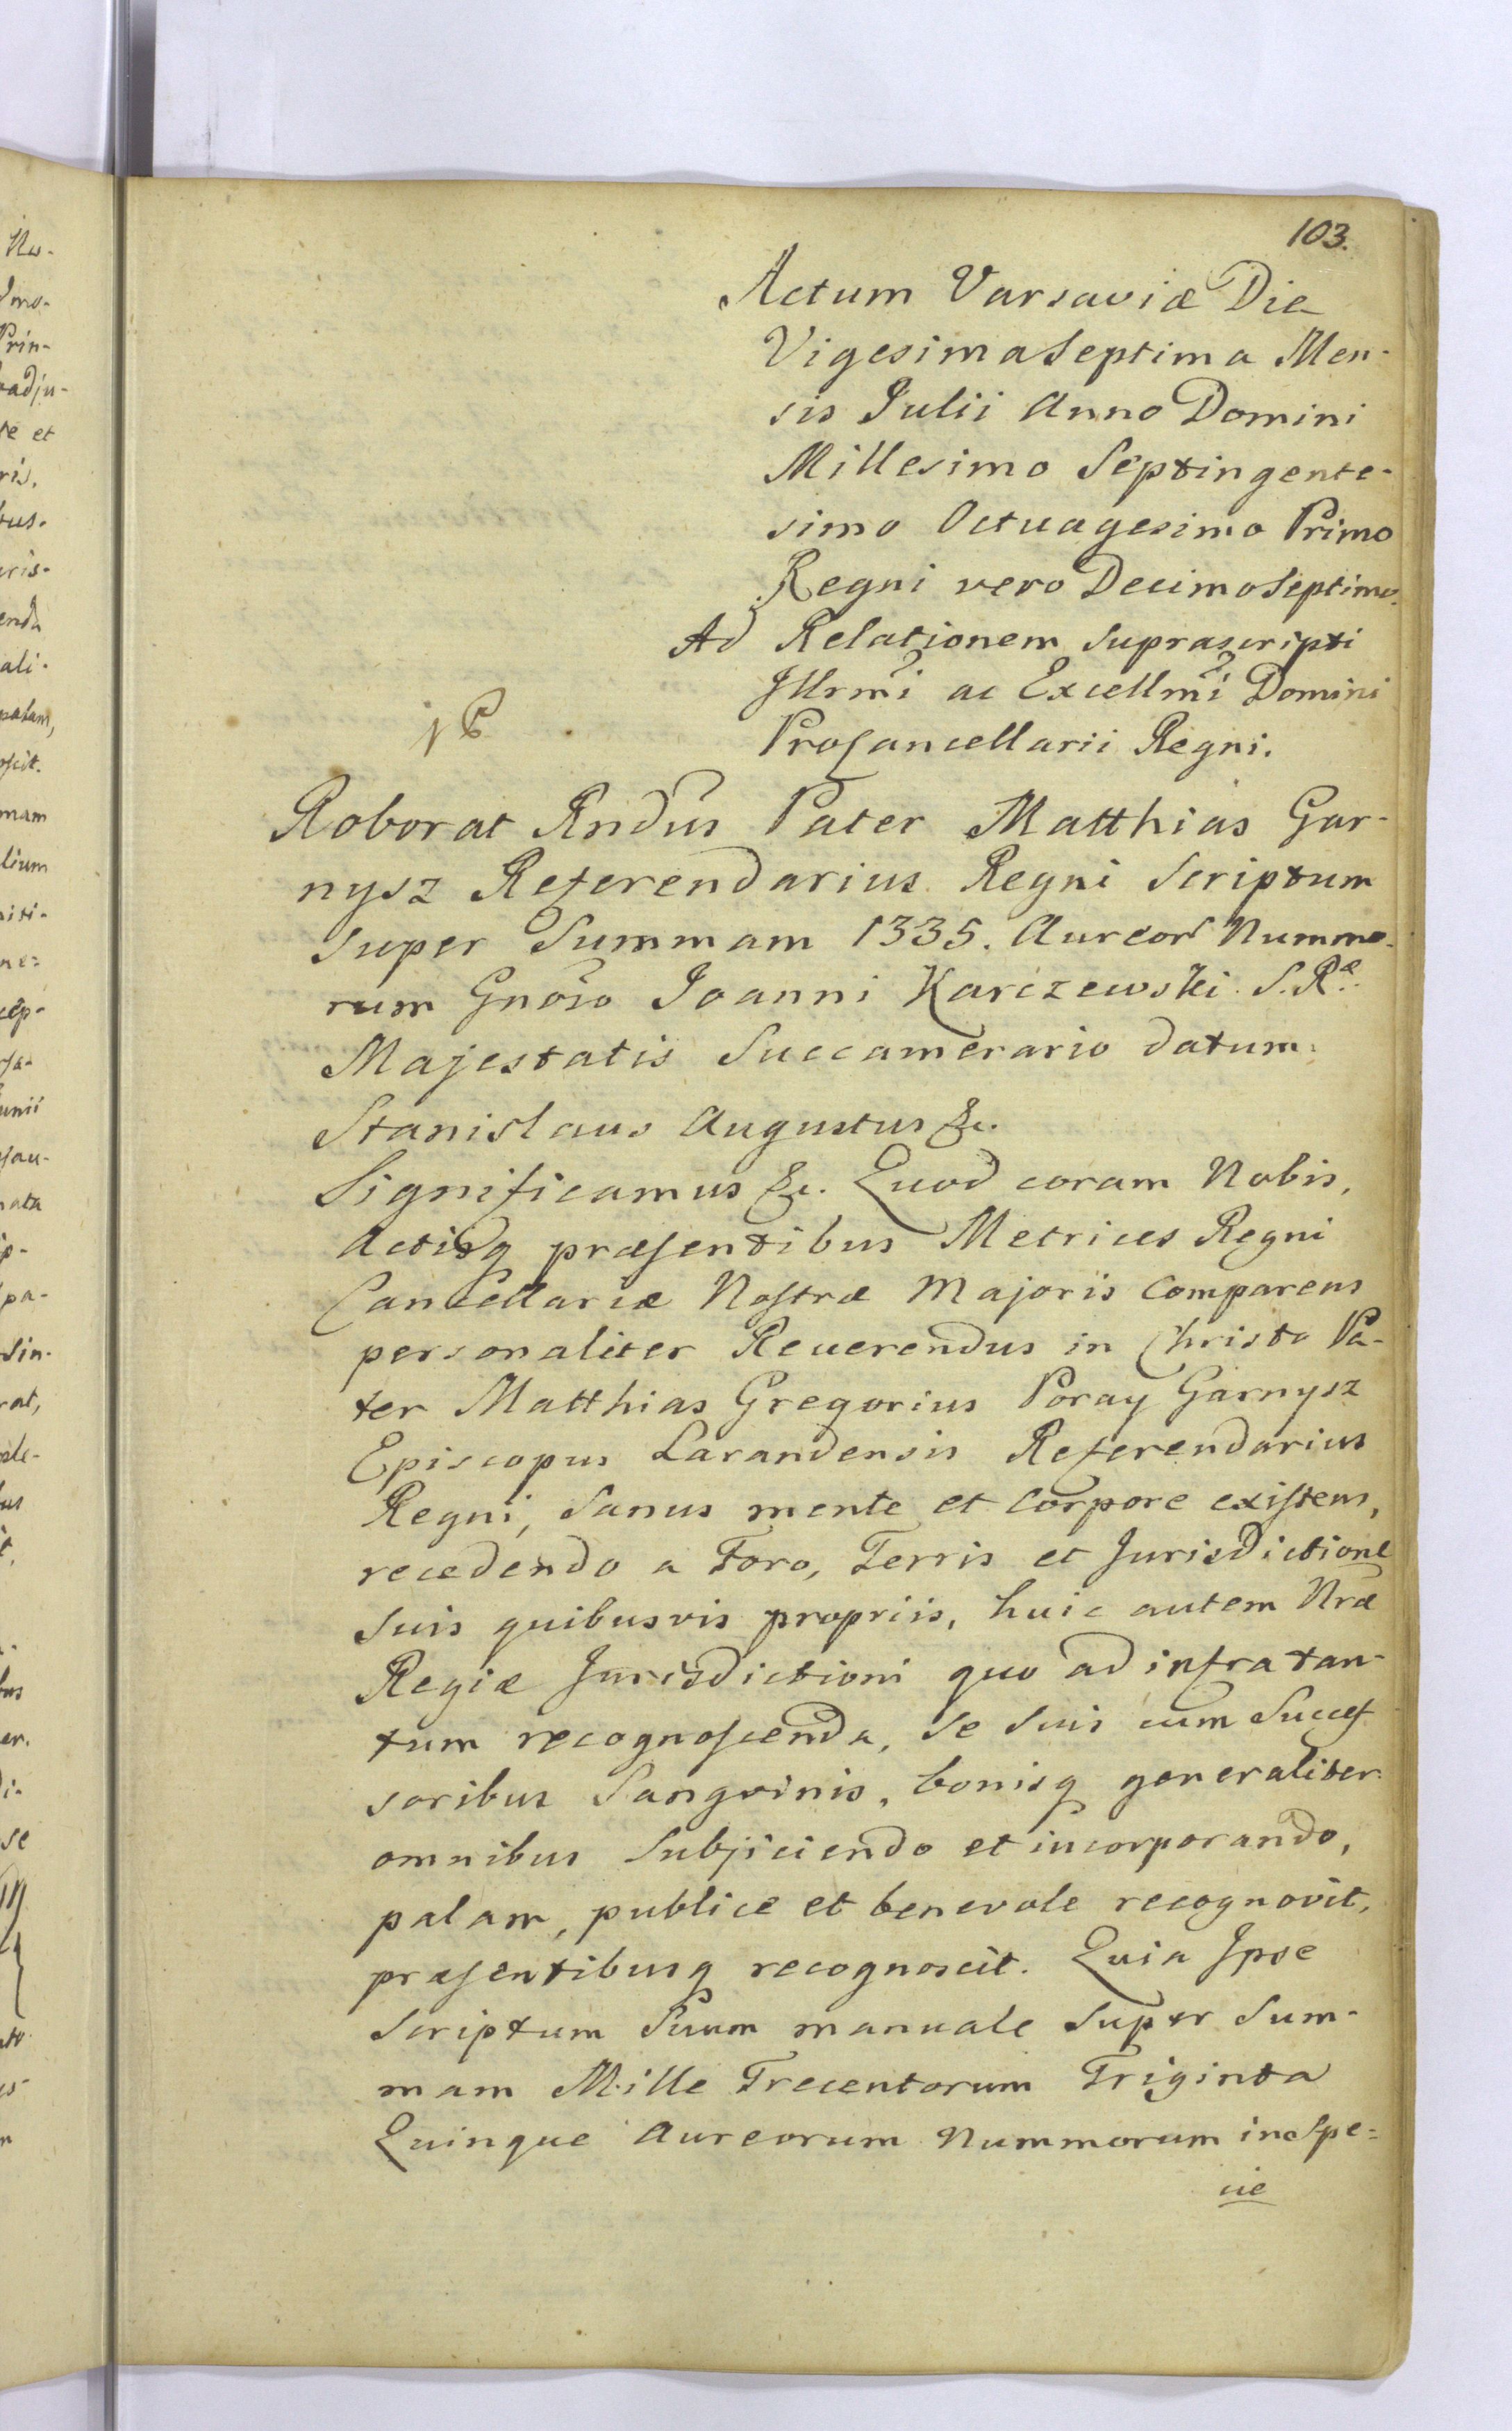 103.
Actum Varsaviæ Die
Vigesima Septima Men-
sis Julii Anno Domini
Millesimo Septingente-
simo Octuagesimo Primo
Regni vero Decimo Septimo.
Ad Relationem suprascripti
Illrmi ac Excellmi Domini
ProCancellarii Regni.
Roborat Rndus Pater Matthias Gar-
nysz Referendarius Regni Scriptum
super Summam 1335. Aureor Nummo-
rum Gnoso Joanni Karczewski S. Ræ
Majestatis Succamerario datum.
Stanislaus Augustus &c.
Significamus &c. Quod coram Nobis,
Actisq præsentibus Metrices Regni
Cancellariæ Nostræ Majoris Comparens
personaliter Reuerendus in Christo Pa-
ter Matthias Gregorius Poray Garnysz
Episcopus Larandensis Referendarius
Regni, Sanus mente et Corpore existens,
recedendo a Foro, Terris et Jurisdictione
Suis quibusvis propriis, huic autem Nræ
Regiæ Jurisdictioni quo ad infra tan-
tum recognoscenda, Se Suis cum Succes
soribus Sangvinis, bonisq generaliter
omnibus Subjiciendo et incorporando,
palam, publice et benevole recognovit,
præsentibusq recognoscit. Quia Ipse
Scriptum Suum manuale Super Sum-
mam Mille Trecentorum Triginta
Quinque Aureorum Nummorum in Spe=
cie
Prin-
te et
ris.
bus.
ali-
palam,
mam
lium
unii
nata
pa-
rat,
er.
se